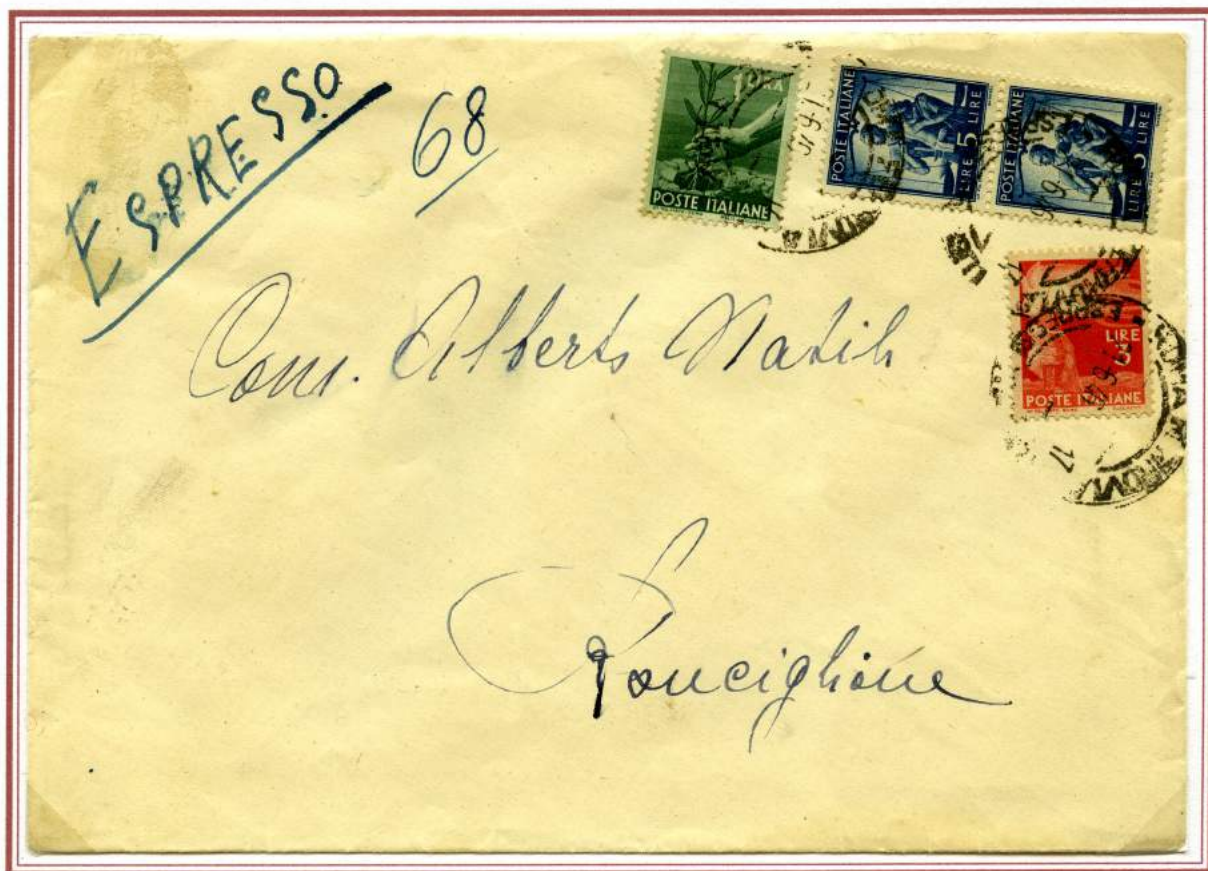 ESPRESSO
68
POSTE ITALIANE
POSTE ITALIANE
LIRE 5 LIRE
POSTE ITALIANE
LIRE 5 LIRE
LIRE
POSTE ITALIANE
ROMA
Com. Alberto
Ronciglione